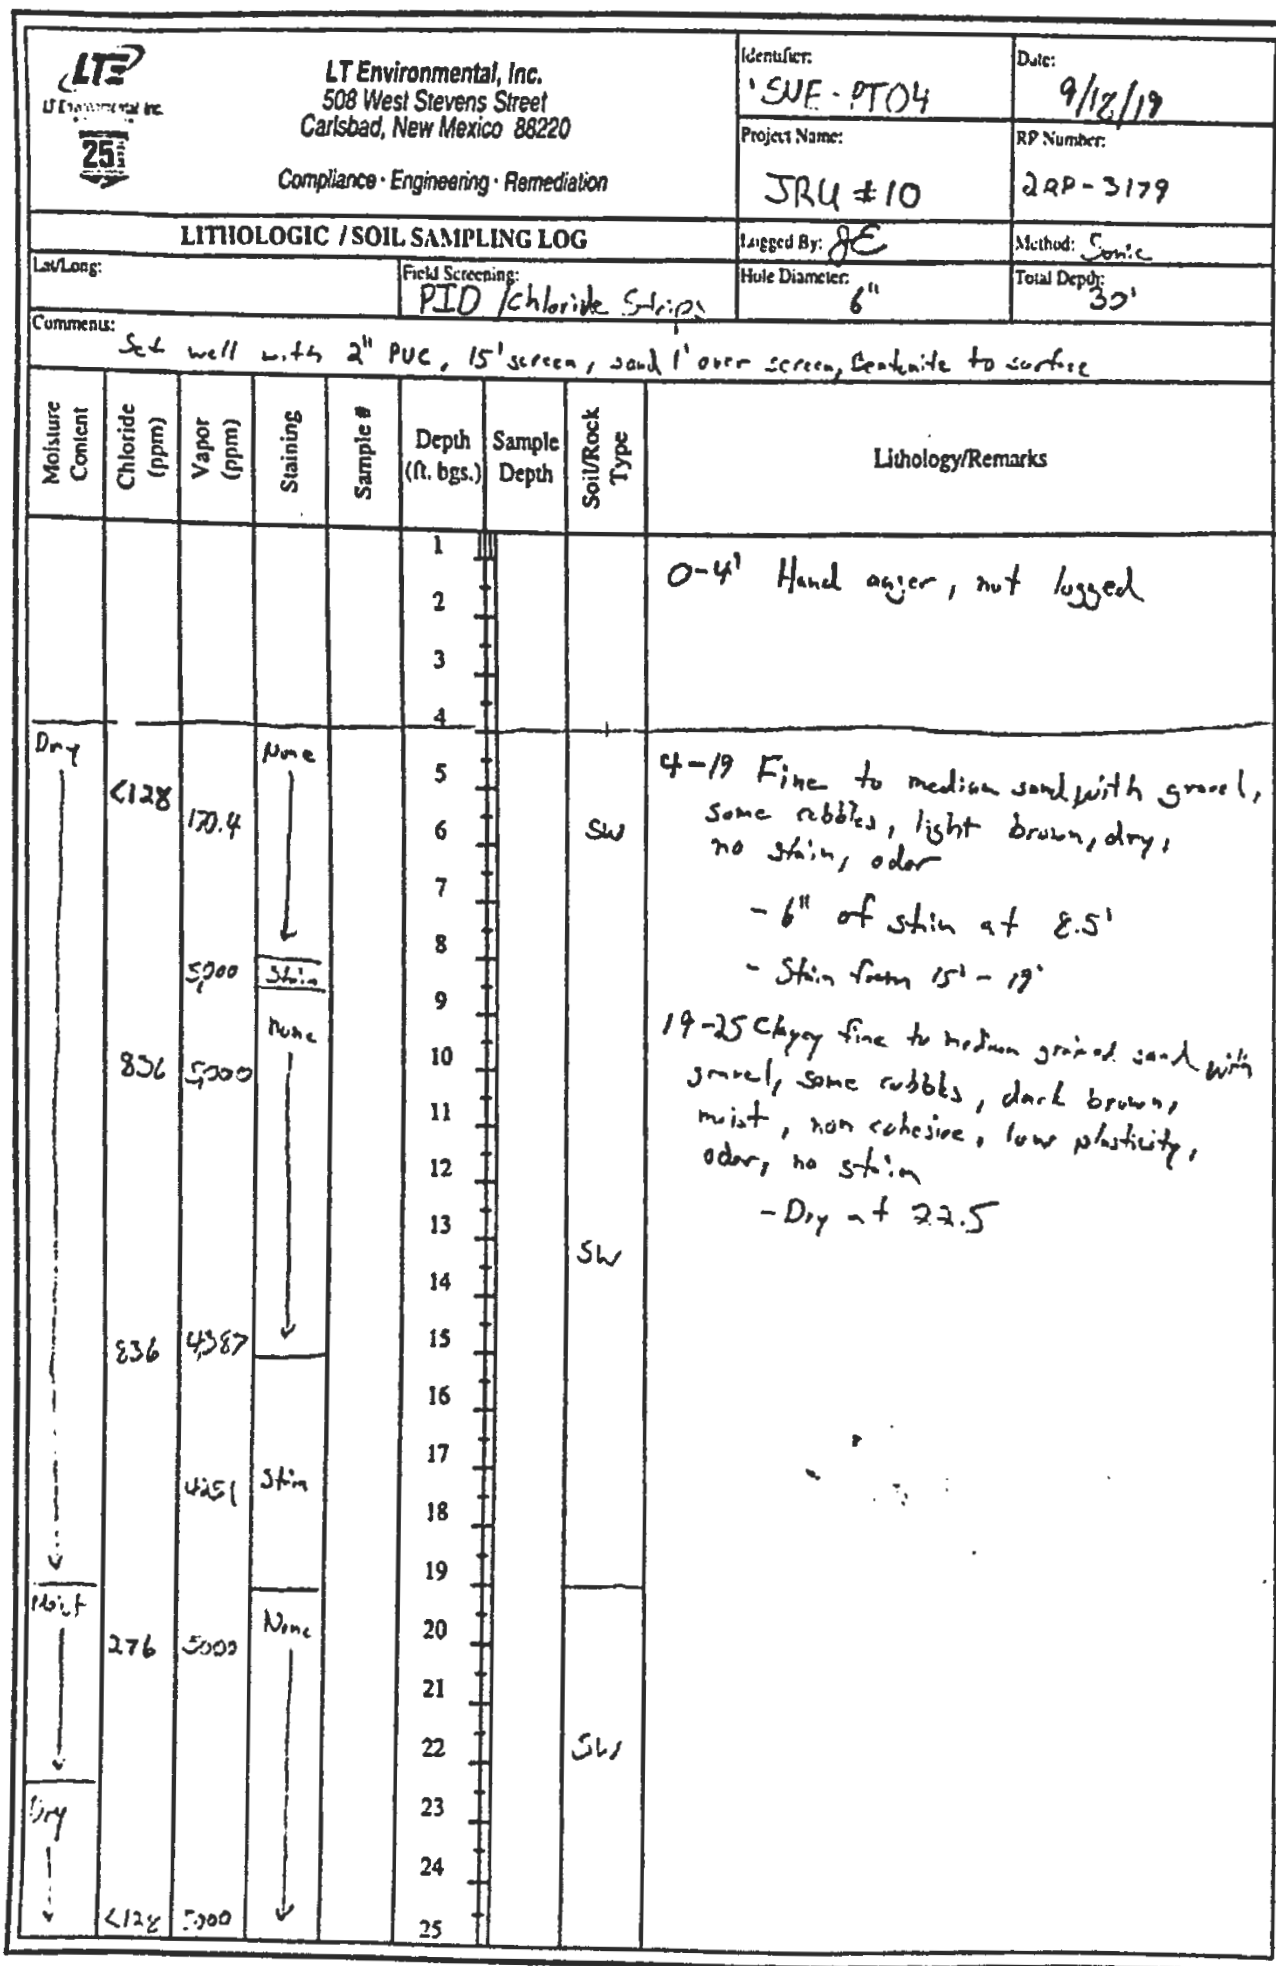 LTE
LT Environmental, Inc.
25
LT Environmental, Inc.
508 West Stevens Street
Carlsbad, New Mexico 88220
Compliance · Engineering · Remediation
Identifier:
SVE-PT04
Date:
9/12/19
Project Name:
JRU #10
RP Number:
2RP-3179
LITHOLOGIC / SOIL SAMPLING LOG
Logged By: JE
Method: Sonic
Lat/Long:
Field Screening:
PID /Chloride Strips
Hole Diameter:
6"
Total Depth:
30'
Comments:
Set well with 2" PVC, 15' screen, sand 1' over screen, bentonite to surface
Moisture Content
Chloride (ppm)
Vapor (ppm)
Staining
Sample #
Depth (ft. bgs.)
Sample Depth
Soil/Rock Type
Lithology/Remarks
1
0-4' Hand auger, not logged
2
3
4
Dry
None
5
4-19 Fine to medium sand with gravel,
<128
170.4
6
SW
some cobbles, light brown, dry,
no stain, odor
7
- 6" of stain at 8.5'
8
5,000
Stain
- Stain from 15' - 19'
9
None
19-25 Clayey fine to medium grained sand with
10
836
5,000
gravel, some cobbles, dark brown,
11
moist, non cohesive, low plasticity,
12
odor, no stain
- Dry at 22.5
13
SW
14
15
836
4,387
16
17
4251
Stain
18
19
Moist
None
20
276
5000
21
22
SW
23
Dry
24
25
<128
5,000